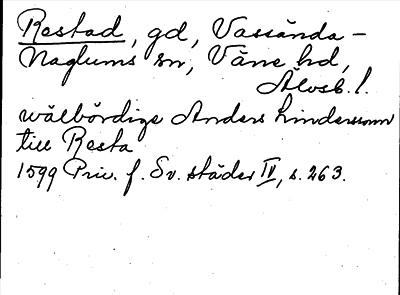 Restad, gd, Vassända-
Naglums sn, Väne hd,
Älvsb. l.
wälbördige Anders Lindersson
till Resta
1599 Priv. f. Sv. städer IV, s. 263.